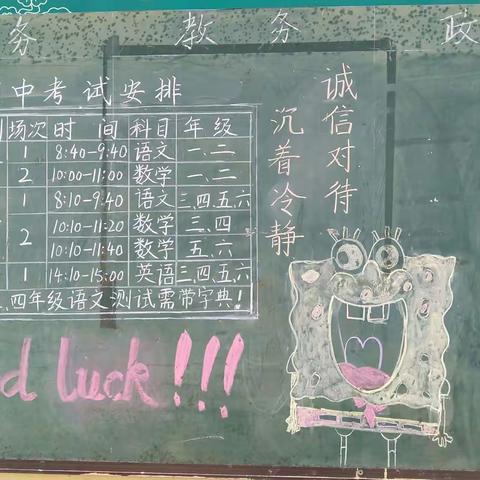 务 教务 政
中考试安排
场次 时间 科目 年级
1 8:40-9:40 语文 一、二
2 10:00-11:00 数学 一、二
1 8:10-9:40 语文 三、四、五、六
2 10:10-11:20 数学 三、四
10:10-11:40 数学 五、六
1 14:10-15:00 英语 三、四、五、六
四年级语文测试需带字典!
诚信对待
沉着冷静
d luck!!!